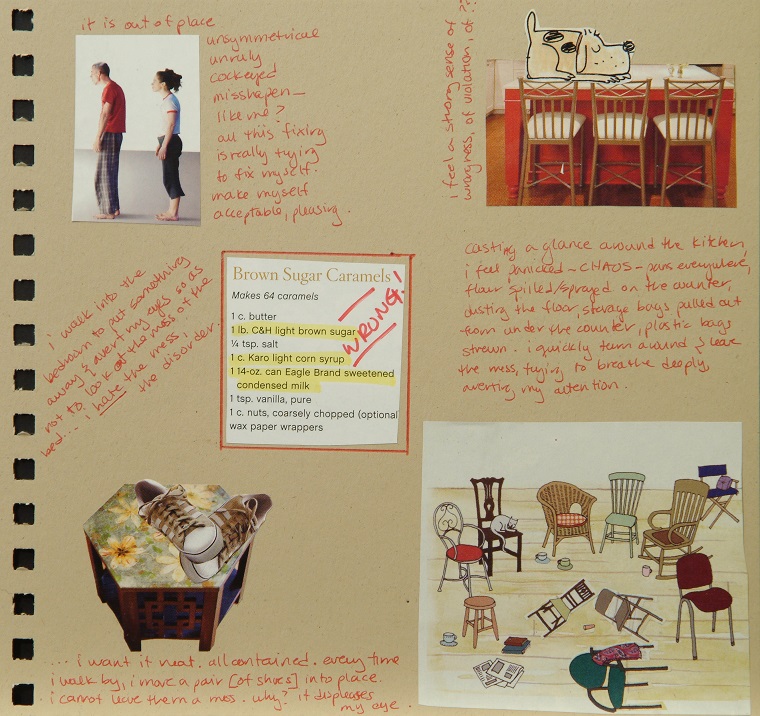 it is out of place
unsymmetrical
unruly
cockeyed
misshapen—
like me?
all this fixing
is really trying
to fix myself.
make myself
acceptable, pleasing.
i feel a strong sense of
wrongness, of violation, of ??
casting a glance around the kitchen,
i feel panicked – CHAOS – pans everywhere,
flour spilled/sprayed on the counter,
dusting the floor, storage bags pulled out
from under the counter, plastic bags
strewn. i quickly turn around & leave
the mess, trying to breathe deeply,
averting my attention.
i walk into the
bedroom to put something
away & avert my eyes so as
not to look at the mess of the
bed... i hate the mess,
the disorder.
Brown Sugar Caramels
Makes 64 caramels
1 c. butter
1 lb. C&H light brown sugar
¼ tsp. salt
1 c. Karo light corn syrup
1 14-oz. can Eagle Brand sweetened
condensed milk
1 tsp. vanilla, pure
1 c. nuts, coarsely chopped (optional
wax paper wrappers
WRONG!
... i want it neat. all contained. every time
i walk by, i move a pair [of shoes] into place.
i cannot leave them a mess. why? it displeases
my eye.